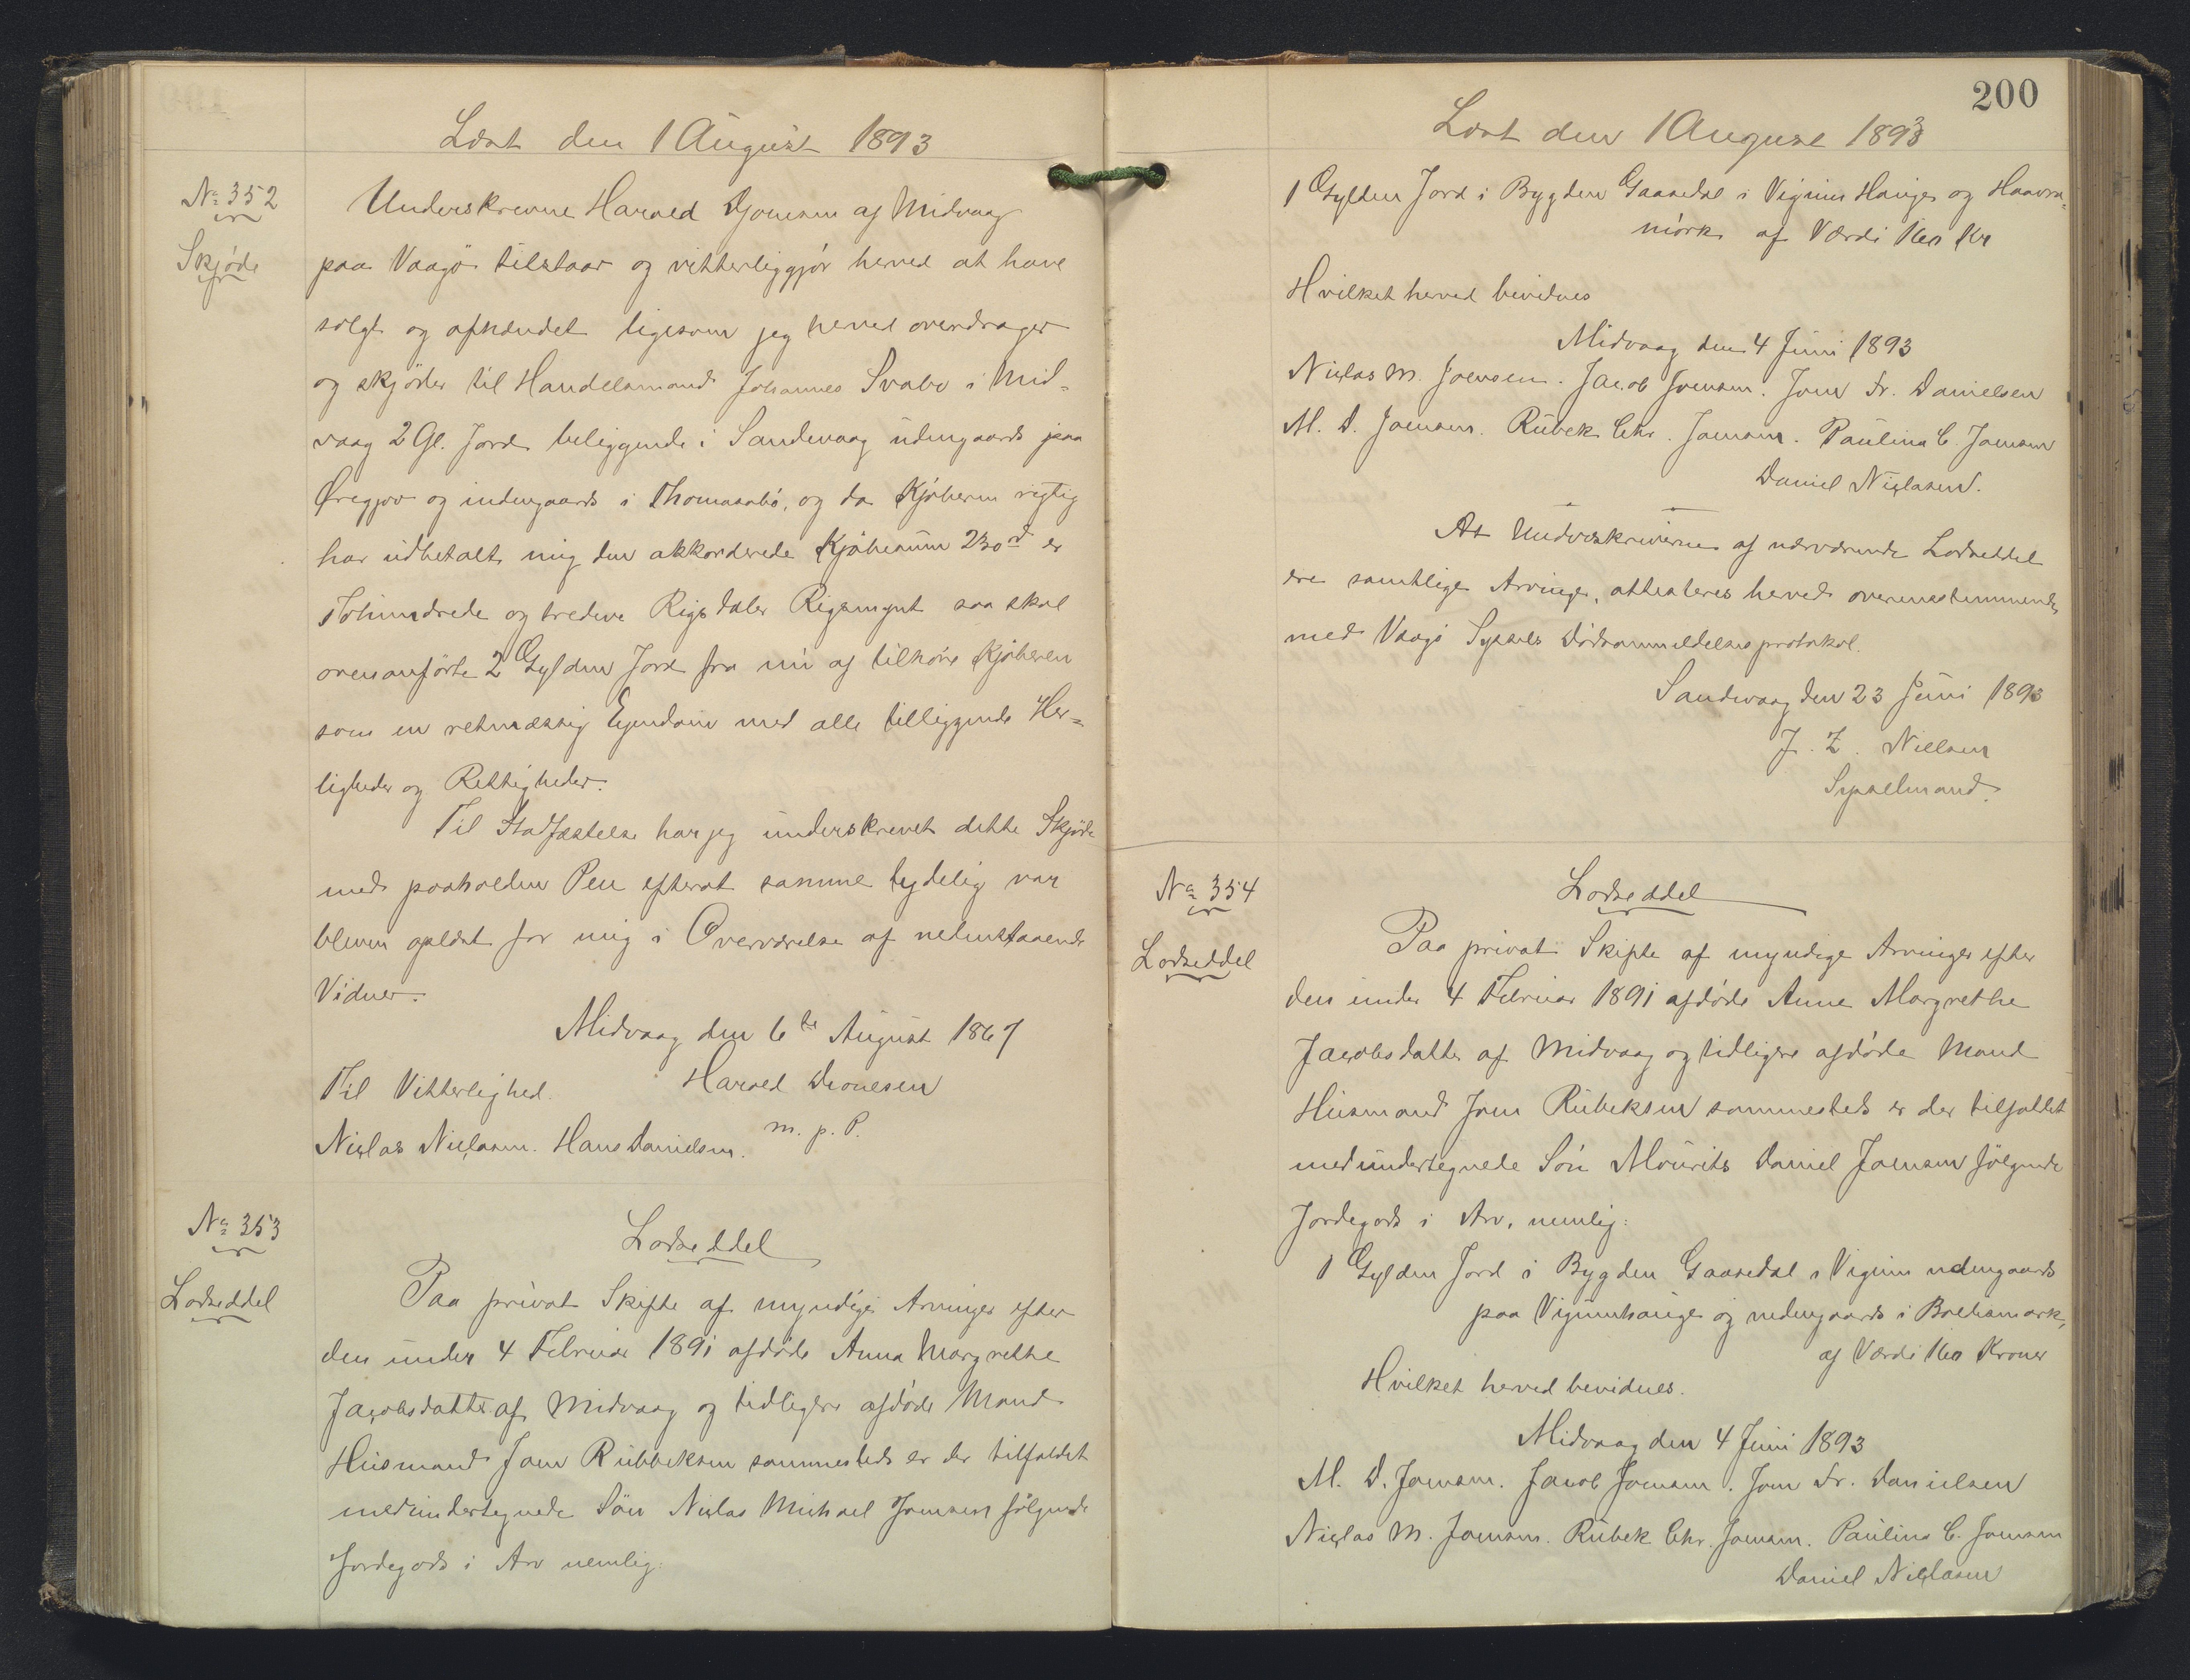 Læst den 1 August 1893
No 352
Skjøde
Underskrevne Harald Djonesen af Midvaag
paa Vaagø tilstaar og vitterliggjør herved at have
solgt og afhændet ligesom jeg herved overdrager
og skjøder til Handelsmand Johannes Svabo i Mid=
vaag 2 Gl. Jord beliggende i Sandevaag udengaards paa
Øregjov og indengaards i Thomasabø, og da Kjøberen rigtig
har udbetalt mig den akkorderede Kjøbesum 230 rd er
Tohundrede og tredive Rigsdaler Rigsmynt saa skal
ovenanførte 2 Gylden Jord fra nu af tilhøre Kjøberen
som en retmæssig Ejendom med alle tilliggende Her=
ligheder og Rettigheder.
Til Stadfæstelse har jeg underskrevet dette Skjøde
med paaholden Pen efterat samme tydelig var
bleven oplæst for mig i Overværelse af nedenstaaende
Vidner.
Midvaag den 6te August 1867
Til Vitterlighed. Harald Dionesen
Niclas Niclasen. Hans Danielsen. m. p. P.
No 353
Lodseddel
Lodseddel
Paa privat Skifte af myndige Arvinger efter
den under 4 Februar 1891 afdøde Anna Margrethe
Jacobsdatter af Midvaag og tidligere afdøde Mand
Husmand Joen Rubbeksen sammesteds er der tilfaldet
medundertegnede Søn Niclas Michael Joensen følgende
Jordegods i Arv nemlig:
200
Læst den 1 August 1893
1 Gylden Jord i Bygden Gaasedal i Vigum Hauge og Haavra=
mørk af Værdi 160 Kr
Hvilket herved bevidnes
Midvaag den 4 Juni 1893
Niclas M. Joensen. Jacob Joensen. Joen Fr. Danielsen
M. D. Joensen. Rubek Chr. Joensen. Paulina C. Joensen
Daniel Niclasen.
At Underskriverne af nærværende Lodseddel
ere samtlige Arvinger, attesteres herved overensstemmende
med Vaagø Syssels Dødsanmeldelsesprotokol.
Sandevaag den 23 Juni 1893
J. Z. Nielsen
Sysselmand.
No 354
Lodseddel
Lodseddel
Paa privat Skifte af myndige Arvinger efter
den under 4 Februar 1891 afdøde Anne Margrethe
Jacobsdatter af Midvaag og tidligere afdøde Mand
Husmand Joen Rubeksen sammesteds er der tilfaldet
medundertegnede Søn Mourits Daniel Joensen følgende
Jordegods i Arv, nemlig:
1 Gylden Jord i Bygden Gaasedal i Vigum udengaards
paa Vigumhauge og indengaards i
af Værdi 160 Kroner
Hvilket herved bevidnes.
Midvaag den 4 Juni 1893
M. D. Joensen. Jacob Joensen. Joen Fr. Danielsen
Niclas M. Joensen. Rubek Chr. Joensen. Paulina C. Joensen
Daniel Niclasen